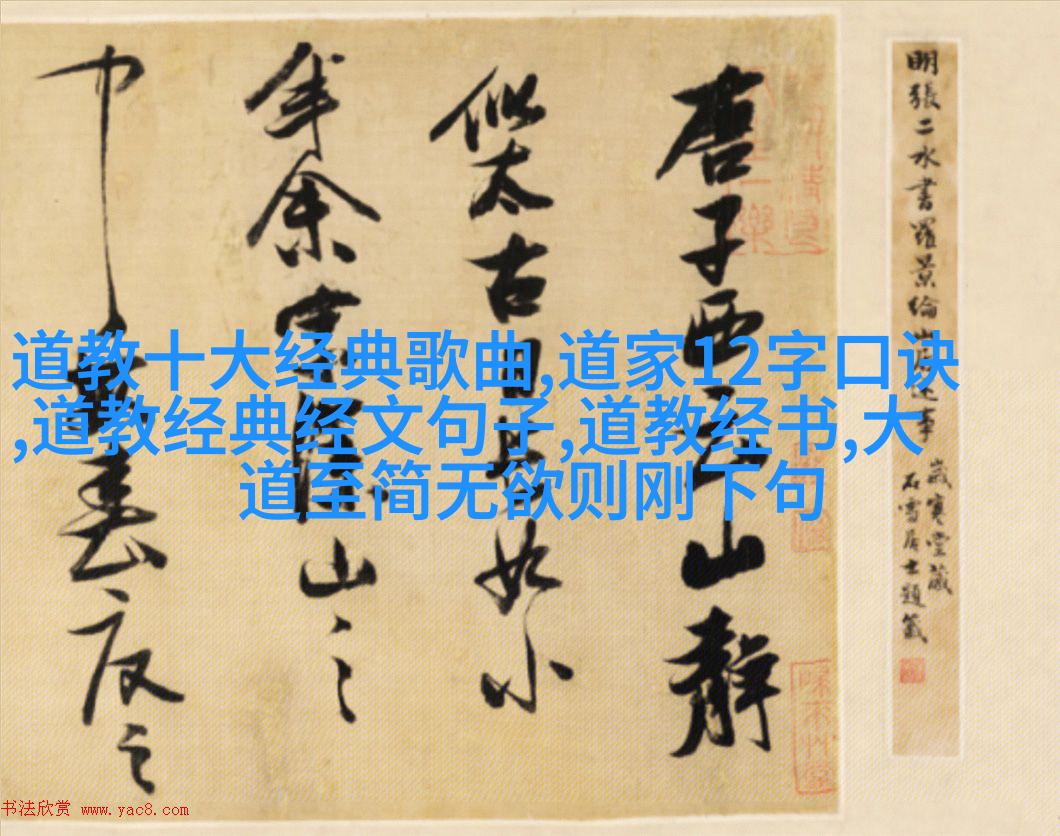 道教十大经典歌曲,道家12字口诀
,道教经典经文句子,道教经书,大
道至简无欲则刚下句
明張二水書羅景綸山居述事
歲寒堂藏
石雪居士題籤
唐子西云山靜
似太古日長如小
年余家深山之
中每春夏之
书法欣赏 www.yac8.com